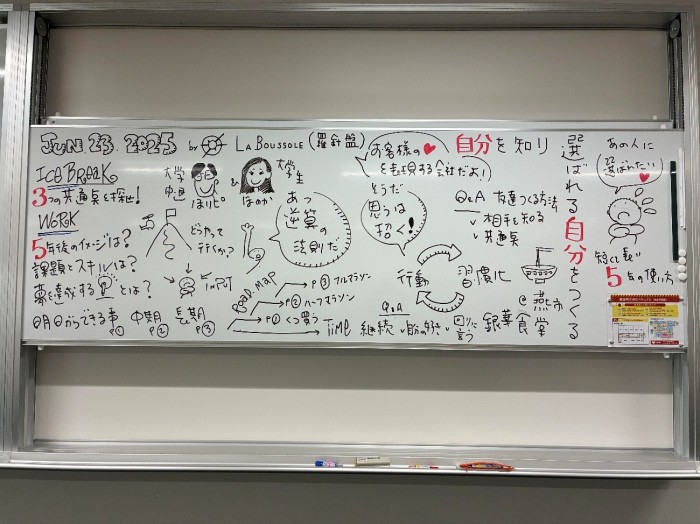 JUN 23. 2025
by LA BOUSSOLE (羅針盤)
ICE BREAK
3つの共通点を探せ!
WORK
5年後のイメージは?
課題とスキルは?
夢を達成する とは?
明日からできる事 P①
中期 P②
長期 P③
大学中退
ほりピ
&
大学生
ほのか
どうやって
行くか?
INPUT
あっ
逆算の
法則だ
ROAD MAP
P③ フルマラソン
P②ハーフマラソン
P① くつ買う
TIME
お客様の
を表現する会社だよ!
そうだ
思うは
招く!
行動
習慣化
Q&A
継続
自分の好き
周りに
言う
自分を知り
Q&A 友達つくる方法
相手を知る
共通点
@燕市
銀華食堂
選ばれる自分をつくる
あの人に
選ばれたい
短く長い
5年の使い方